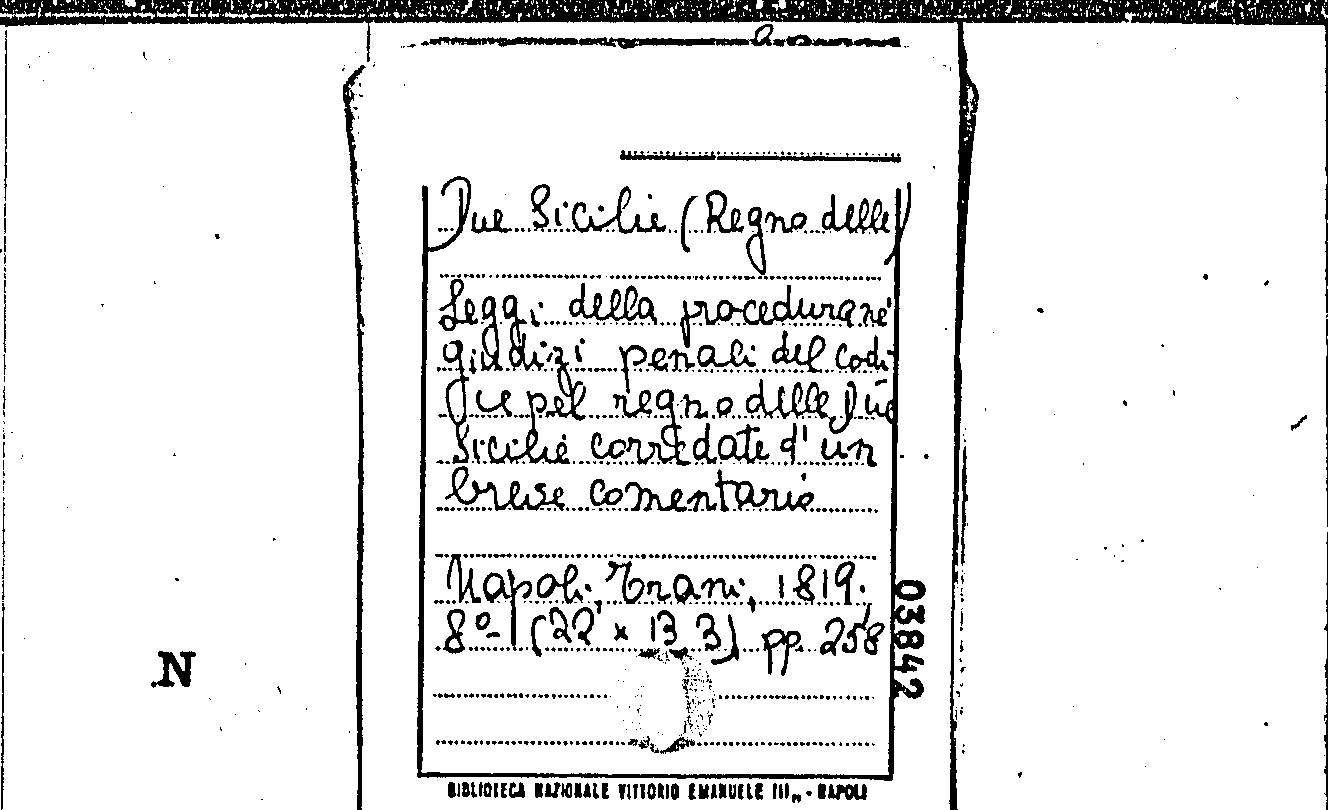 Due Sicilie (Regno delle)
Leggi della procedura ne'
giudizi penali del codi-
ce pel regno delle Due
Sicilie corredate d'un
breve comentario
Napoli, Trani, 1819.
8º (22 x 13,3) pp. 258
03842
N
BIBLIOTECA NAZIONALE VITTORIO EMANUELE III„ - NAPOLI